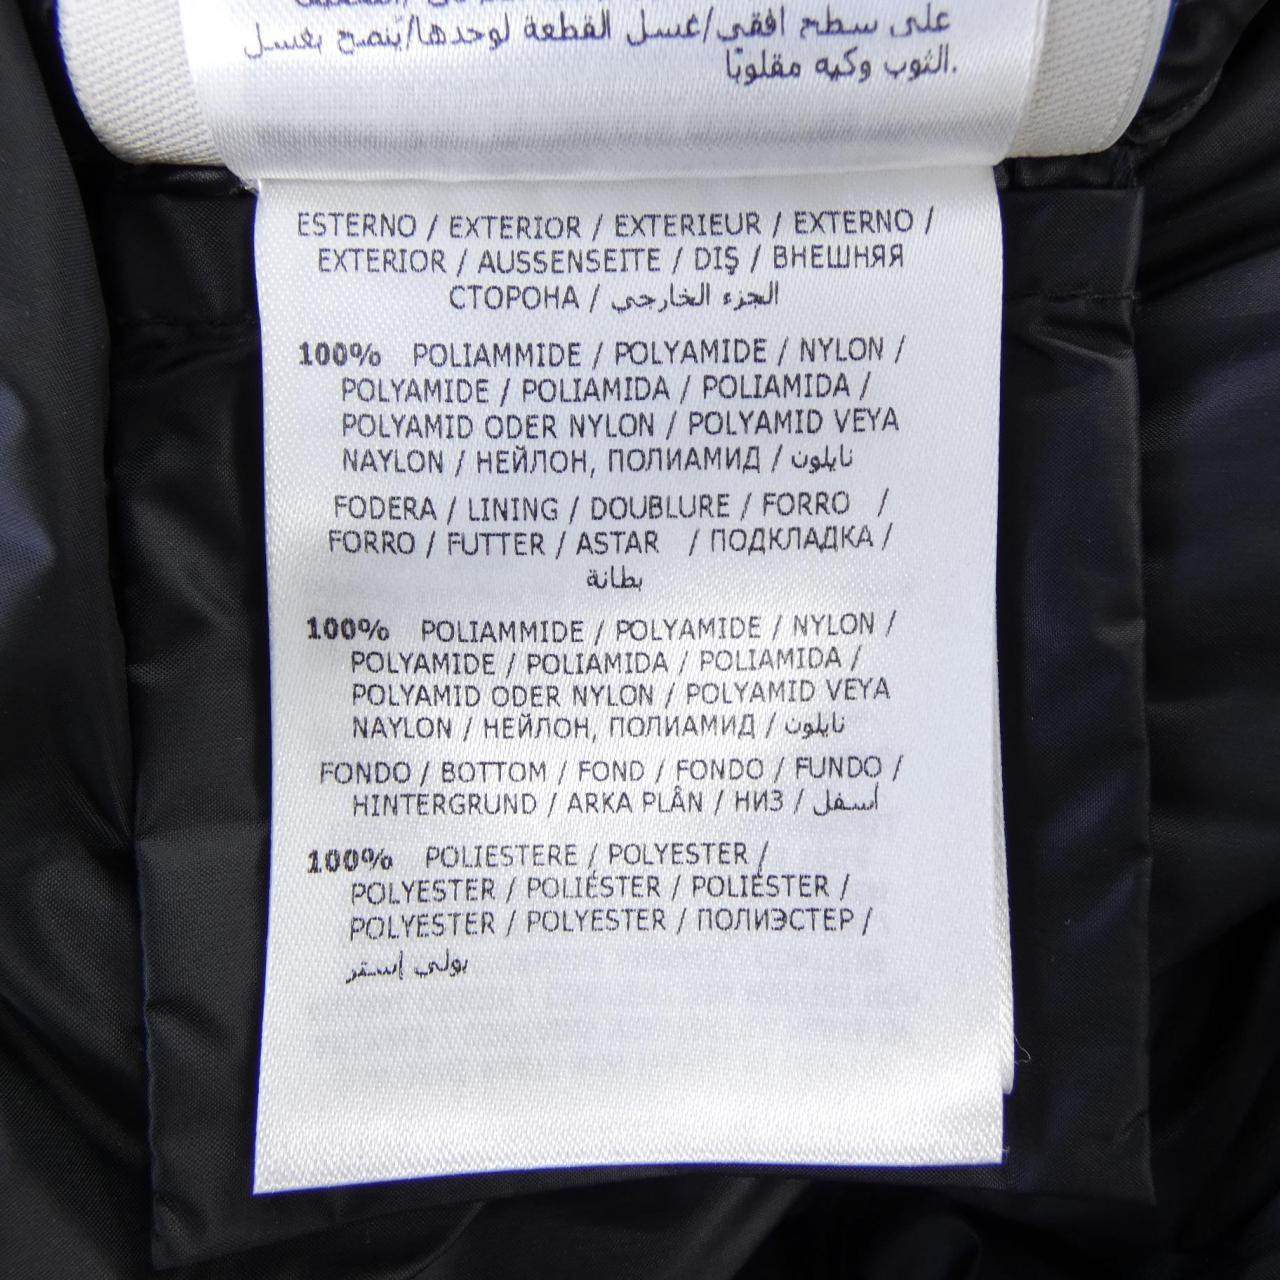 على سطح افقي/غسل القطعة لوحدها/يُنصح بغسل
الثوب وكيه مقلوبًا.
ESTERNO / EXTERIOR / EXTERIEUR / EXTERNO /
EXTERIOR / AUSSENSEITE / DIŞ / ВНЕШНЯЯ
СТОРОНА / الجزء الخارجي
100% POLIAMMIDE / POLYAMIDE / NYLON /
POLYAMIDE / POLIAMIDA / POLIAMIDA /
POLYAMID ODER NYLON / POLYAMID VEYA
NAYLON / НЕЙЛОН, ПОЛИАМИД / نايلون
FODERA / LINING / DOUBLURE / FORRO /
FORRO / FUTTER / ASTAR / ПОДКЛАДКА /
بطانة
100% POLIAMMIDE / POLYAMIDE / NYLON /
POLYAMIDE / POLIAMIDA / POLIAMIDA /
POLYAMID ODER NYLON / POLYAMID VEYA
NAYLON / НЕЙЛОН, ПОЛИАМИД / نايلون
FONDO / BOTTOM / FOND / FONDO / FUNDO /
HINTERGRUND / ARKA PLÂN / НИЗ / أسفل
100% POLIESTERE / POLYESTER /
POLYESTER / POLIÉSTER / POLIÉSTER /
POLYESTER / POLYESTER / ПОЛИЭСТЕР /
بولي إستر